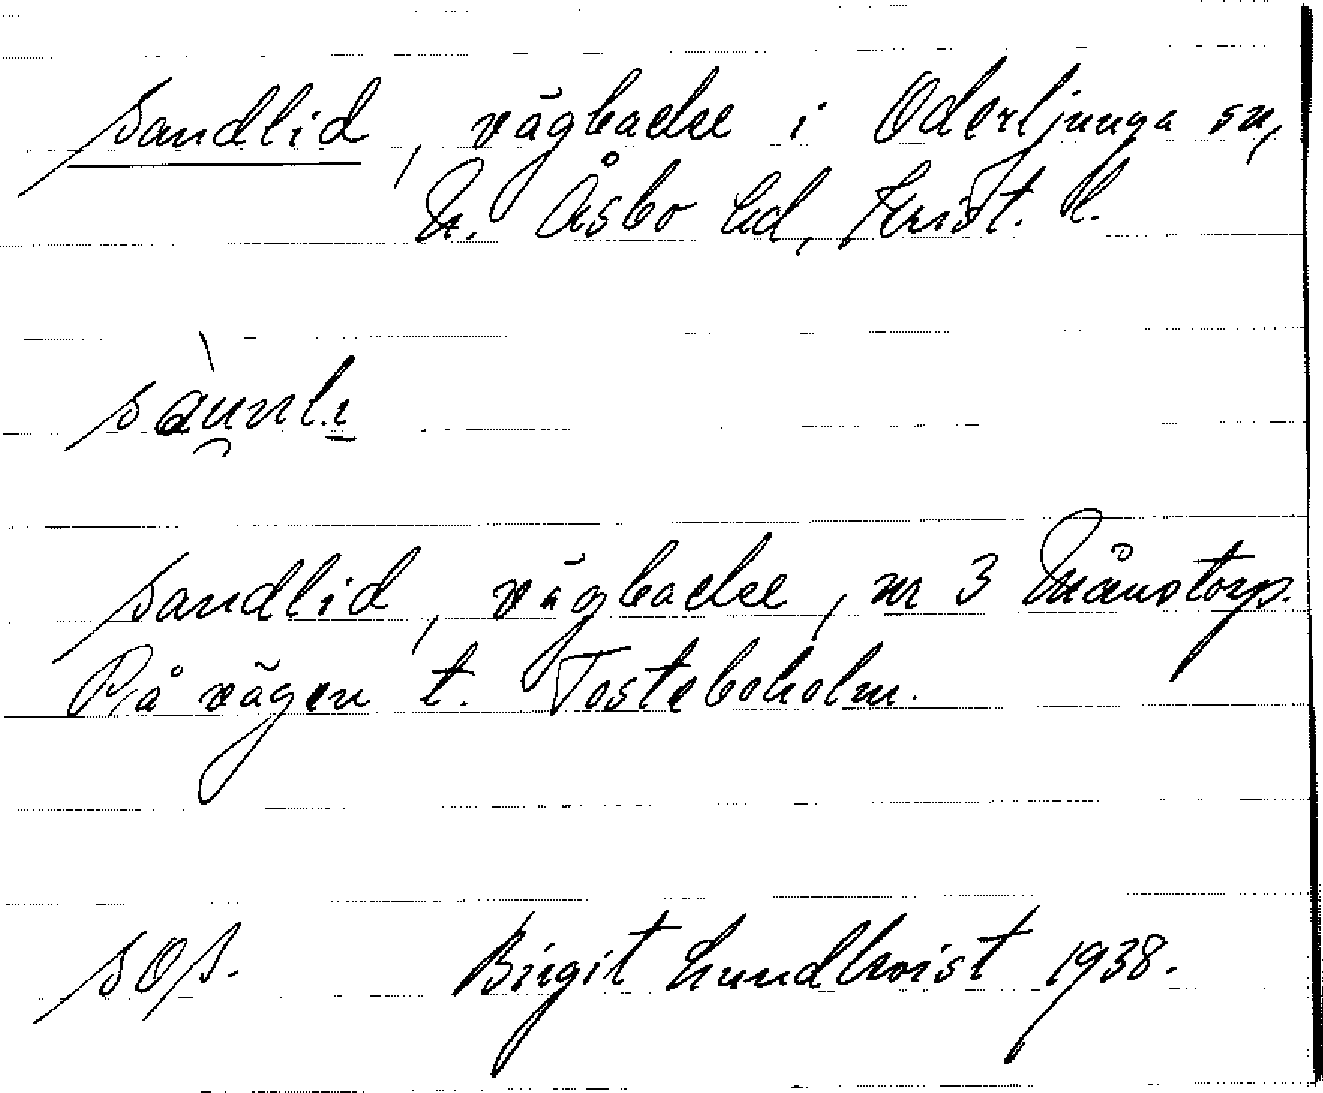 Sandlid, vägbacke i Oderljunga sn,
N. Åsbo hd, Krist. l.
Sandlid, vägbacke, nr 3 Månstorp.
På vägen t. Tosteboholm.
Birgit Lundkvist 1938.